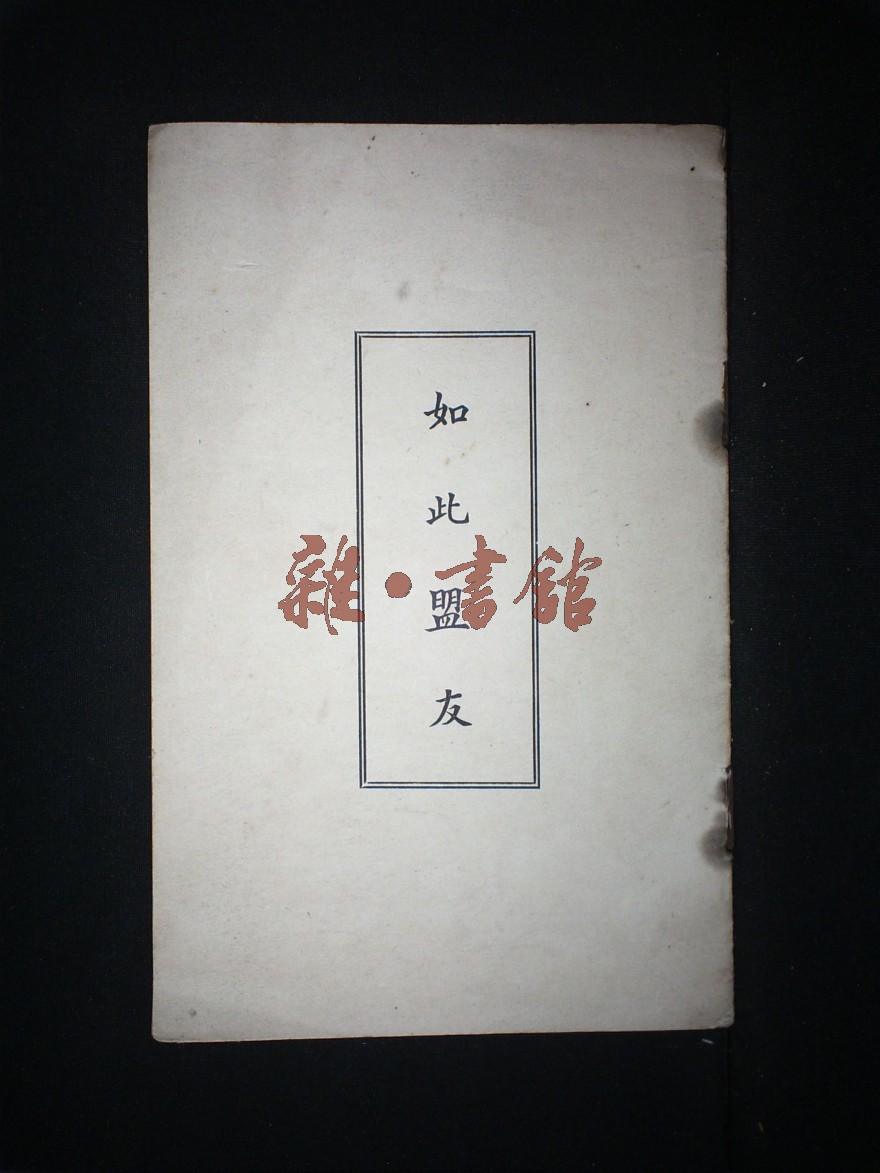 如此盟友
雜·書館